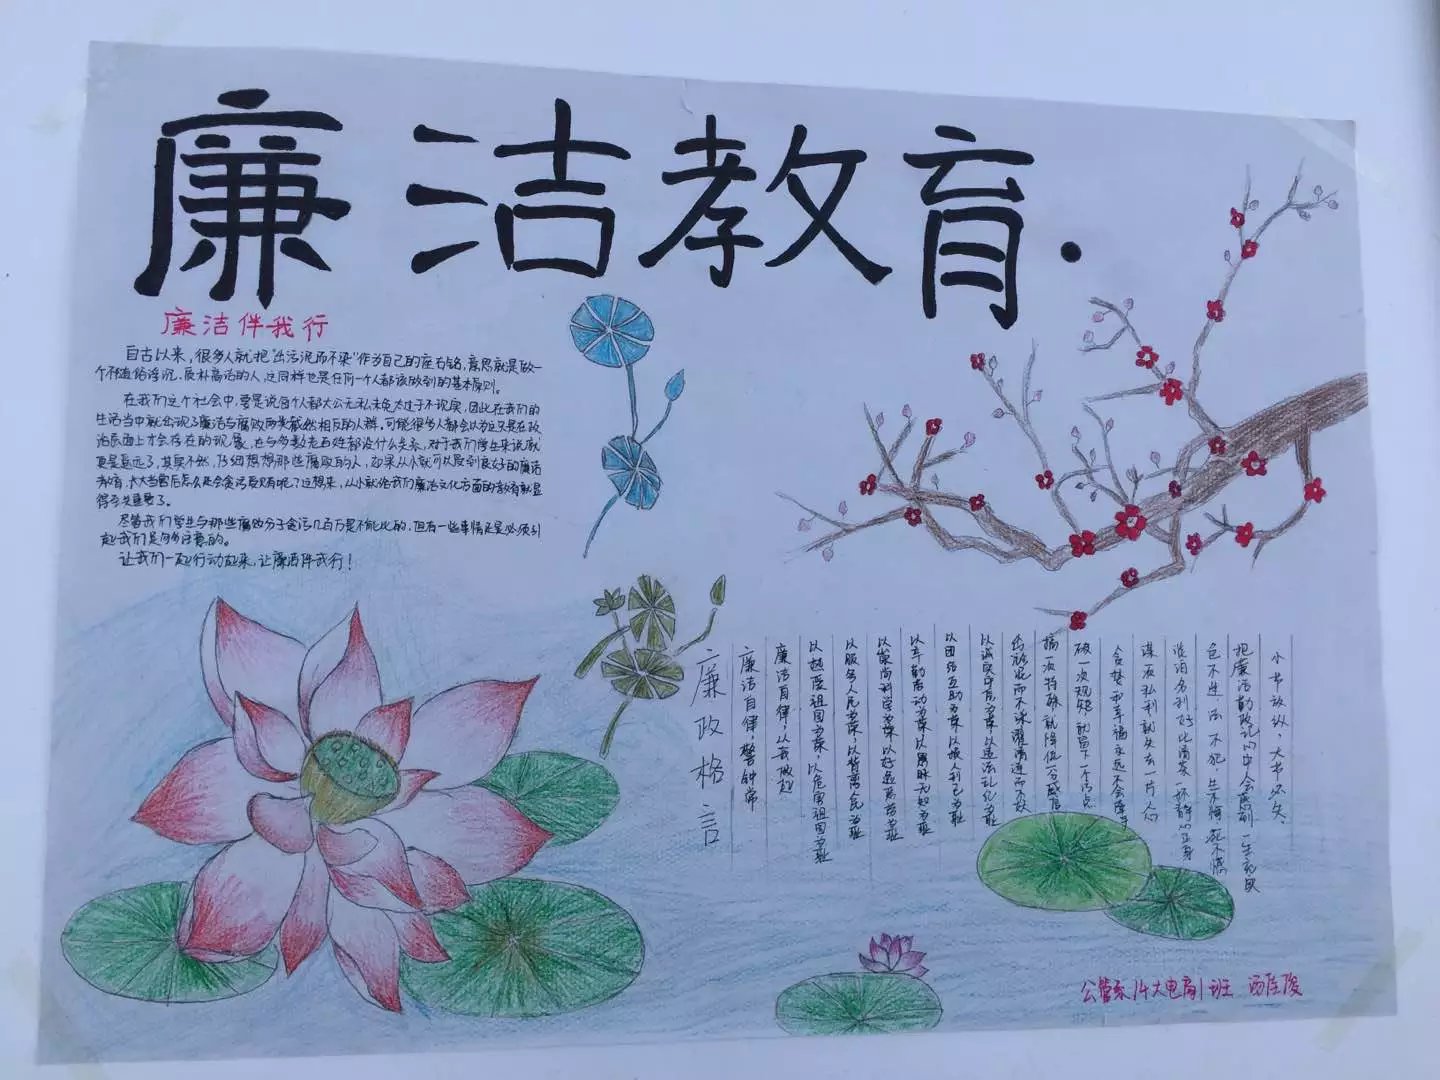 廉洁教育.
廉洁伴我行
自古以来,很多人就把"出污泥而不染"作为自己的座右铭,意思就是做一
个不随俗浮沉,质朴高洁的人,这同样也是任何一个人都该做到的基本原则。
在我们这个社会中,要是说每个人都大公无私未免太过于不现实,因此在我们的
生活当中就出现了廉洁与腐败两类截然相反的人群,可能很多人都会以为这只是在政
治层面上才会存在的现象,在与多数老百姓都没什么关系,对于我们学生来说就
更是遥远了,其实不然,仔细想想那些腐败的人,如果从小就可以受到良好的廉洁
教育,长大当官后怎么还会贪污受贿呢?这想来,从小就给我们廉洁文化方面的教育就显
得至关重要了。
尽管我们学生与那些腐败分子贪污几百万是不能比的,但有一些事情还是必须引
起我们足够注意的。
让我们一起行动起来,让廉洁伴我行!
小节放纵,大节必失,
把廉洁勤政记心中会感到一生充实
色不迷 法不犯,生不悔 死不憾
淡泊名利 好比清茶一杯静心正身
谋取私利就失去一片人心
贪婪和幸福永远不会牵手
破一次规矩 就留下一个污点
搞一次特殊 就降低一分威信
出淤泥而不染 濯清涟而不妖
以诚实守信为荣 以违法乱纪为耻
以团结互助为荣 以损人利己为耻
以辛勤劳动为荣 以愚昧无知为耻
以崇尚科学为荣 以好逸恶劳为耻
以服务人民为荣,以背离人民为耻
以热爱祖国为荣,以危害祖国为耻
廉洁自律,从我做起
廉洁自律,警钟常
廉政格言
公管系14大电商1班